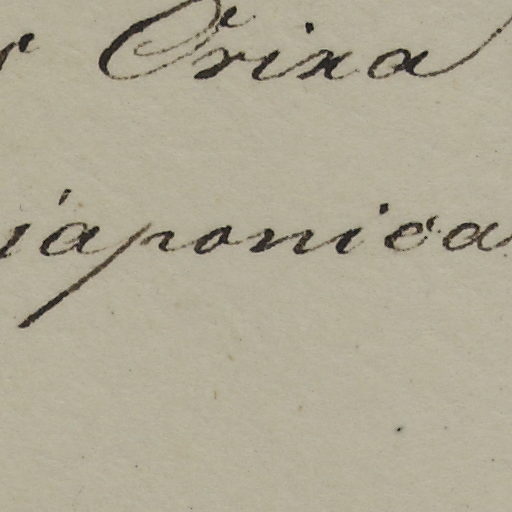 r Orixa
japonica